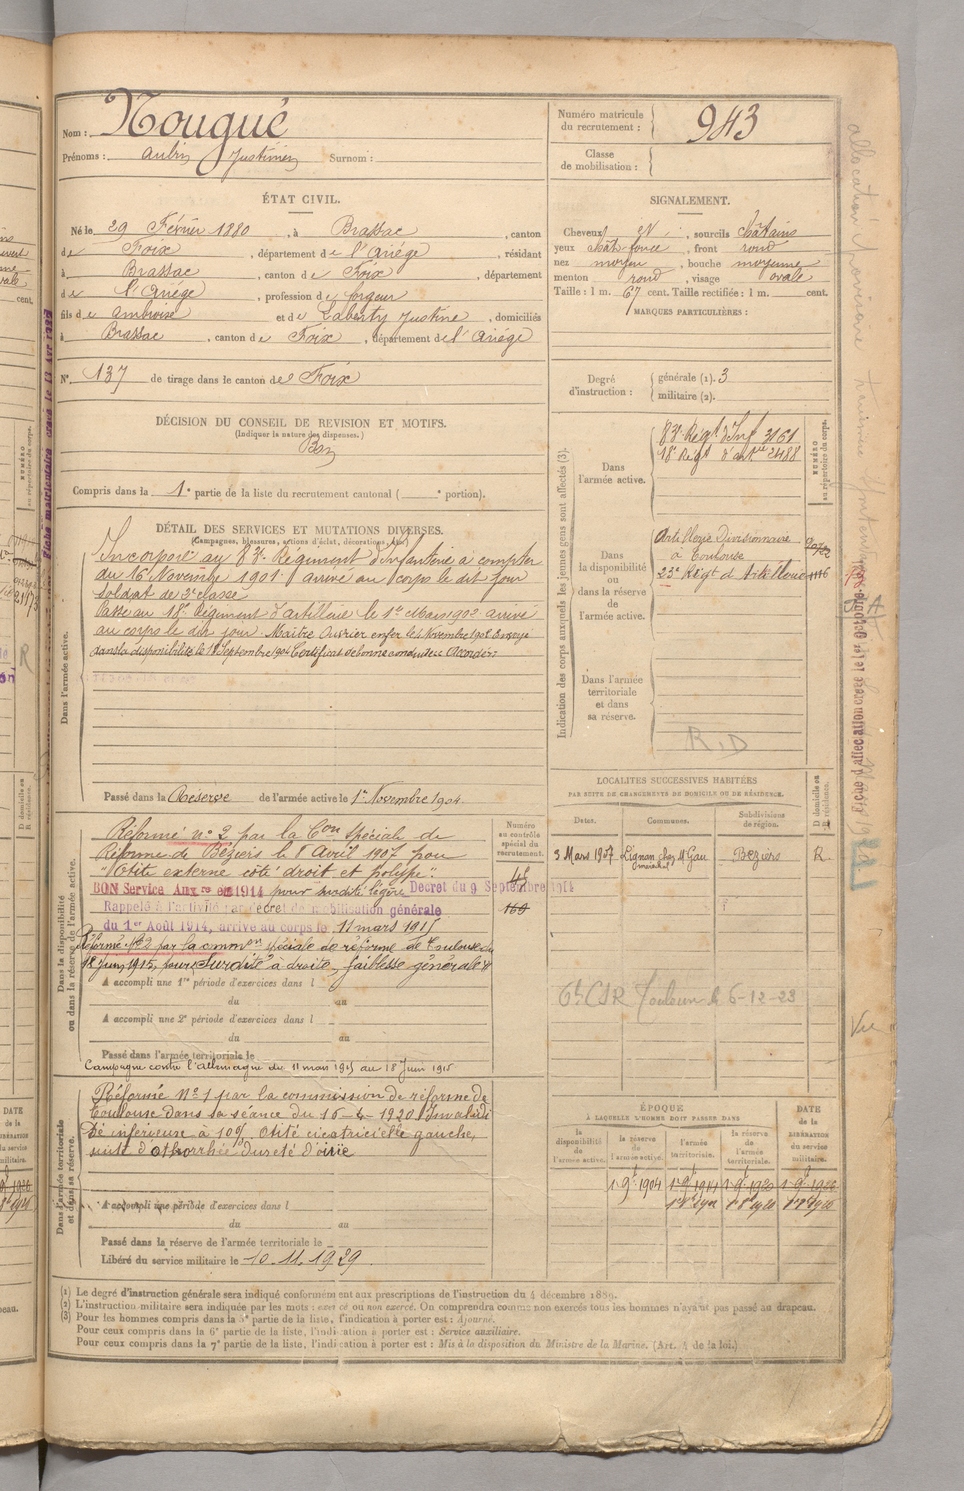 Nom : Nougué
Prénoms : Aubin Justinien Surnom :
Numéro matricule du recrutement : 943
Classe de mobilisation :
ÉTAT CIVIL.
Né le 29 Février 1880, à Brassac, canton
de Foix, département de l'Ariége, résidant
à Brassac, canton de Foix, département
de l'Ariége, profession de forgeur
fils de Ambroise et de Laberty Justine, domiciliés
à Brassac, canton de Foix, département de l'Ariége
N° 137 de tirage dans le canton de Foix
SIGNALEMENT.
Cheveux N, sourcils châtains
yeux chât. foncé, front rond
nez moyen, bouche moyenne
menton rond, visage ovale
Taille : 1 m. 67 cent. Taille rectifiée : 1 m. cent.
MARQUES PARTICULIÈRES :
Degré d'instruction : générale (1). 3
militaire (2).
DÉCISION DU CONSEIL DE REVISION ET MOTIFS.
(Indiquer la nature des dispenses.)
Bon
Compris dans la 1e partie de la liste du recrutement cantonal ( e portion).
DÉTAIL DES SERVICES ET MUTATIONS DIVERSES.
(Campagnes, blessures, actions d'éclat, décorations, etc.)
Dans l'armée active.
Incorporé au 83e Régiment d'Infanterie à compter
du 16 Novembre 1901 arrivé au corps le dit jour
soldat de 2e classe
Passé au 18e Régiment d'artillerie le 1er Mars 1902 arrivé
au corps le dit jour. Maître Ouvrier en fer le 1 Novembre 1902 Envoyé
dans la disponibilité le 18 Septembre 1904 Certificat de bonne conduite Accordé
Passé dans la Réserve de l'armée active le 1er Novembre 1904.
Indication des corps auxquels les jeunes gens sont affectés (3).
NUMÉRO au répertoire du corps.
Dans l'armée active.
83e Régt d'Inf 3161
18e Régt d'artie 2488
Dans la disponibilité ou dans la réserve de l'armée active.
Artillerie Divisionnaire
à Toulouse
23e Régt d'Artillerie 1116
Dans l'armée territoriale et dans sa réserve.
R.D
LOCALITES SUCCESSIVES HABITÉES
PAR SUITE DE CHANGEMENTS DE DOMICILE OU DE RÉSIDENCE.
D domicile ou R résidence.
Dates. Communes. Subdivisions de région.
3 Mars 1907 Lignan chez Mr Gau maréchal Béziers R.
6e CSR Toulouse le 6-12-23
Dans la disponibilité ou dans la réserve de l'armée active.
Numéro au contrôle spécial du recrutement.
Réformé n° 2 par la Con Spéciale de
Réforme de Béziers le 8 Avril 1907 pour
"Otite externe côté droit et polype".
BON Service Auxre en 1914 pour surdité légère Decret du 9 Septembre 1914
Rappelé à l'activité par decret de mobilisation générale
du 1er Août 1914, arrivé au corps le 11 mars 1915
Réformé N°2 par la common spéciale de réforme de Toulouse du
18 Juin 1915, pour "Surdité à droite, faiblesse générale"
A accompli une 1re période d'exercices dans l
du au
A accompli une 2e période d'exercices dans l
du au
Passé dans l'armée territoriale le
Campagne contre l'Allemagne du 11 mars 1915 au 18 Juin 1915
Dans l'armée territoriale et dans sa réserve.
Réformé N°1 par la commission de réforme de
Toulouse dans sa séance du 16-4-1920 Invalidi
té inférieure à 10% Otite cicatricielle gauche,
suite d'othorrhée dureté d'ouïe
A accompli une période d'exercices dans l
du au
Passé dans la réserve de l'armée territoriale le
Libéré du service militaire le 10.11.1929.
ÉPOQUE
À LAQUELLE L'HOMME DOIT PASSER DANS
DATE de la LIBÉRATION du service militaire.
la disponibilité de l'armée active. la réserve de l'armée active. l'armée territoriale. la réserve de l'armée territoriale.
(1) Le degré d'instruction générale sera indiqué conformément aux prescriptions de l'instruction du 4 décembre 1889.
(2) L'instruction militaire sera indiquée par les mots : exercé ou non exercé. On comprendra comme non exercés tous les hommes n'ayant pas passé au drapeau.
(3) Pour les hommes compris dans la 5e partie de la liste, l'indication à porter est : Ajourné.
Pour ceux compris dans la 6e partie de la liste, l'indication à porter est : Service auxiliaire.
Pour ceux compris dans la 7e partie de la liste, l'indication à porter est : Mis à la disposition du Ministre de la Marine. (Art. 4 de la loi.)